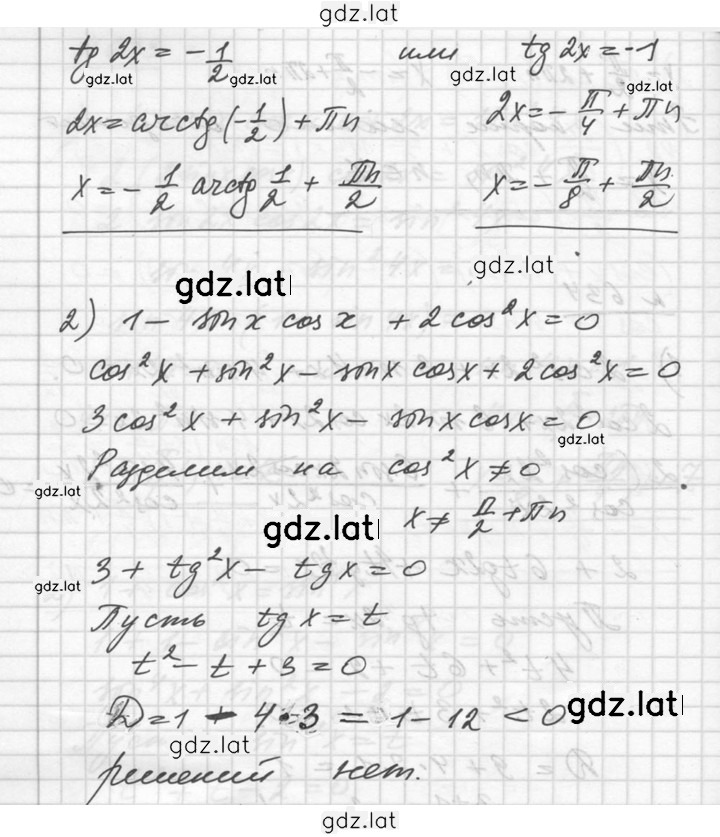 gdz.lat
tg 2x = -1/2 или tg 2x = -1
gdz.lat gdz.lat gdz.lat gdz.lat
2x = arctg(-1/2) + πn 2x = -π/4 + πn
x = -1/2 arctg 1/2 + πn/2 x = -π/8 + πn/2
gdz.lat
gdz.lat
2) 1 - sin x cos x + 2 cos²x = 0
cos²x + sin²x - sin x cos x + 2 cos²x = 0
3 cos²x + sin²x - sin x cos x = 0
gdz.lat
Разделим на cos²x ≠ 0
gdz.lat
x ≠ π/2 + πn
gdz.lat
3 + tg²x - tg x = 0
gdz.lat
Пусть tg x = t
t² - t + 3 = 0
D = 1 - 4·3 = 1 - 12 < 0
gdz.lat
gdz.lat
решений нет.
gdz.lat